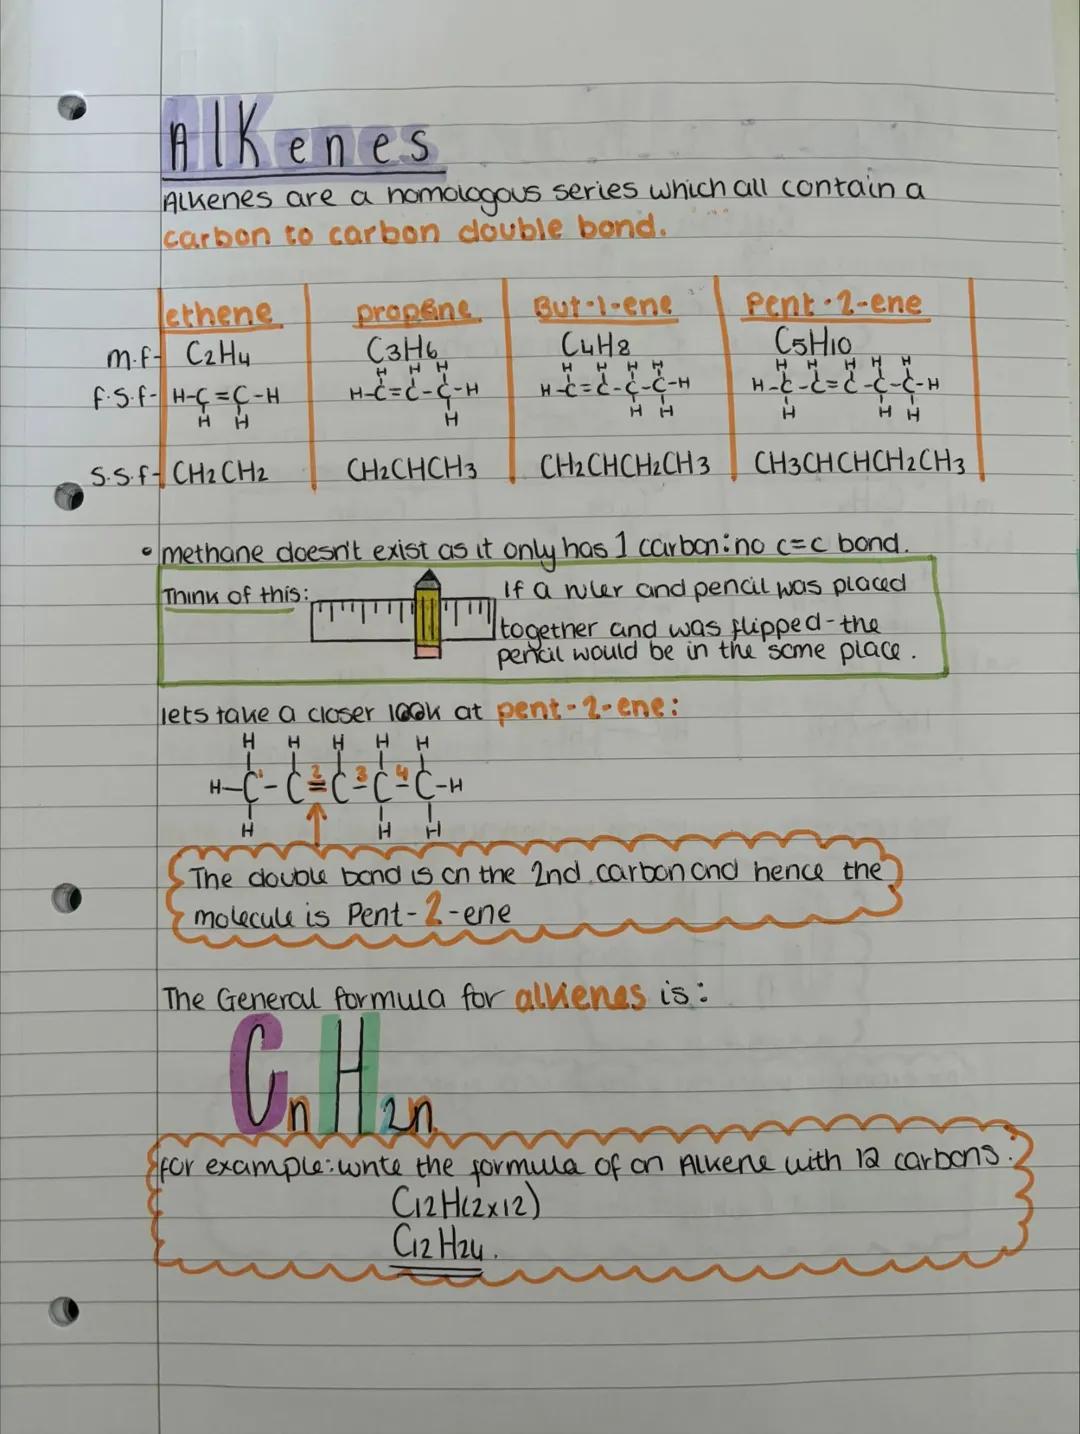 Alkenes
Alkenes are a homologous series which all contain a
carbon to carbon double bond.
ethene propene But-1-ene Pent-2-ene
m.f- C2H4 C3H6 C4H8 C5H10
H H H H H H H H H H H H
f.s.f- H-C=C-H H-C=C-C-H H-C=C-C-C-H H-C-C=C-C-C-H
H H H H H H H H
s.s.f- CH2CH2 CH2CHCH3 CH2CHCH2CH3 CH3CHCHCH2CH3
• methane doesn't exist as it only has 1 carbon∴no c=c bond.
Think of this: If a ruler and pencil was placed
together and was flipped-the
pencil would be in the same place.
lets take a closer look at pent-2-ene:
H H H H H
1 2 3 4
H-C-C=C-C-C-H
H H H
The double bond is on the 2nd carbon and hence the
molecule is Pent-2-ene
The General formula for alkenes is:
CnH2n
for example: write the formula of an Alkene with 12 carbons.
C12H(2x12)
C12H24.